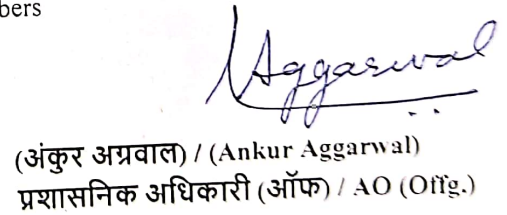 bers
Aggarwal
(अंकुर अग्रवाल) / (Ankur Aggarwal)
प्रशासनिक अधिकारी (ऑफ) / AO (Offg.)